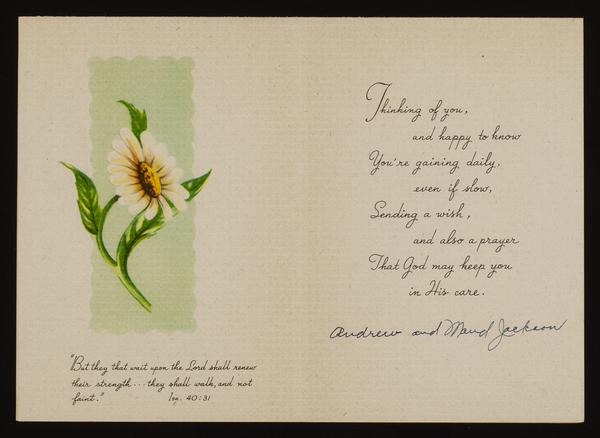 "But they that wait upon the Lord shall renew
their strength...they shall walk, and not
faint." Isa. 40:31
Thinking of you,
and happy to know
You're gaining daily,
even if slow,
Sending a wish,
and also a prayer
That God may keep you
in His care.
Andrew and Maud Jackson